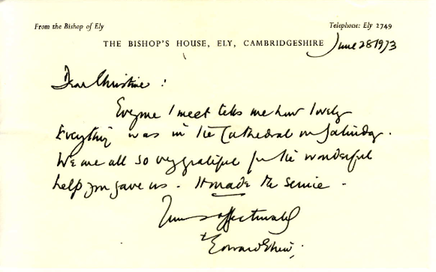 From the Bishop of Ely
Telephone: Ely 2749
THE BISHOP'S HOUSE, ELY, CAMBRIDGESHIRE
June 28 1973
Dear Christine :
Everyone I meet tells me how lovely
Everything was in the Cathedral on Saturday.
We are all so very grateful for the wonderful
help you gave us. It made the service.
Yours affectionately
+ Edward Elien: